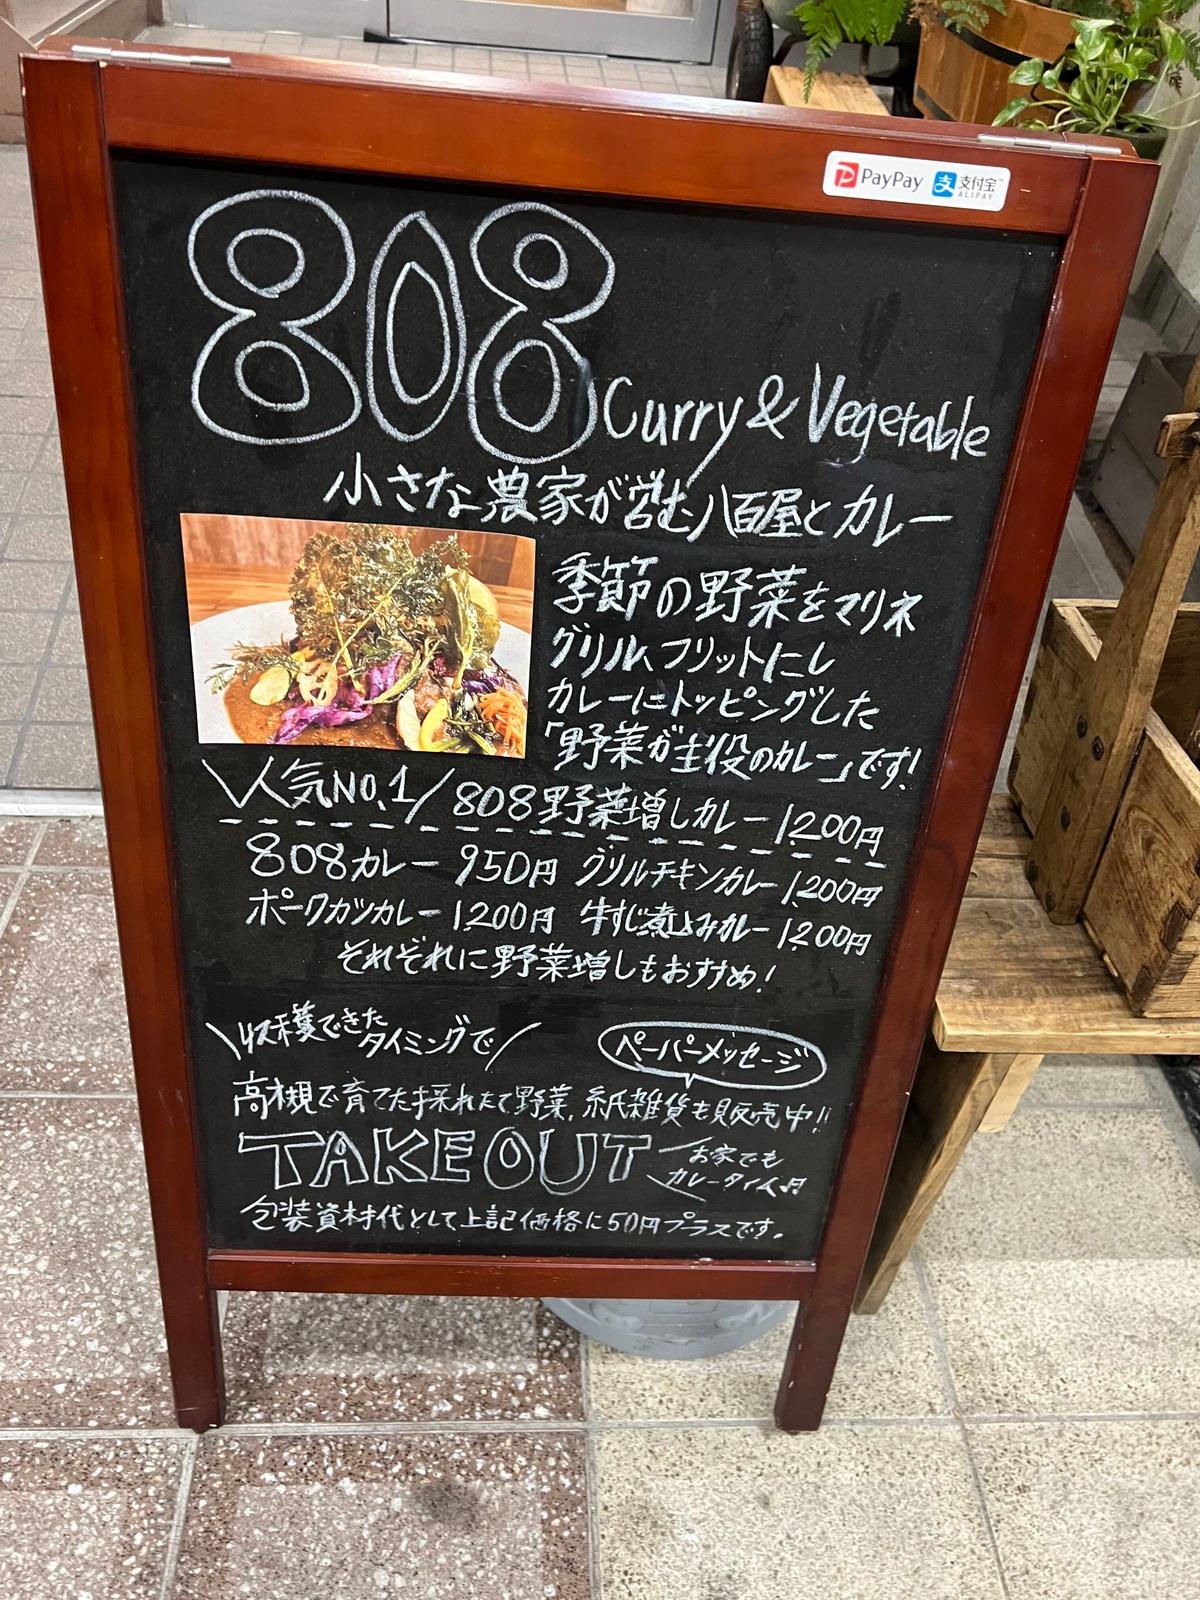 PayPay 支付宝 ALIPAY
808 Curry & Vegetable
小さな農家が営む八百屋とカレー
季節の野菜をマリネ
グリル、フリットにし
カレーにトッピングした
「野菜が主役のカレー」です!
\人気NO.1/ 808野菜増しカレー 1,200円
808カレー 950円 グリルチキンカレー 1,200円
ポークカツカレー 1,200円 牛すじ煮込みカレー 1,200円
それぞれに野菜増しもおすすめ!
\収穫できたタイミングで/
ペーパーメッセージ
高槻で育てた採れたて野菜、紙雑貨も販売中!!
TAKE OUT お家でもカレータイム♬
包装資材代として上記価格に50円プラスです。